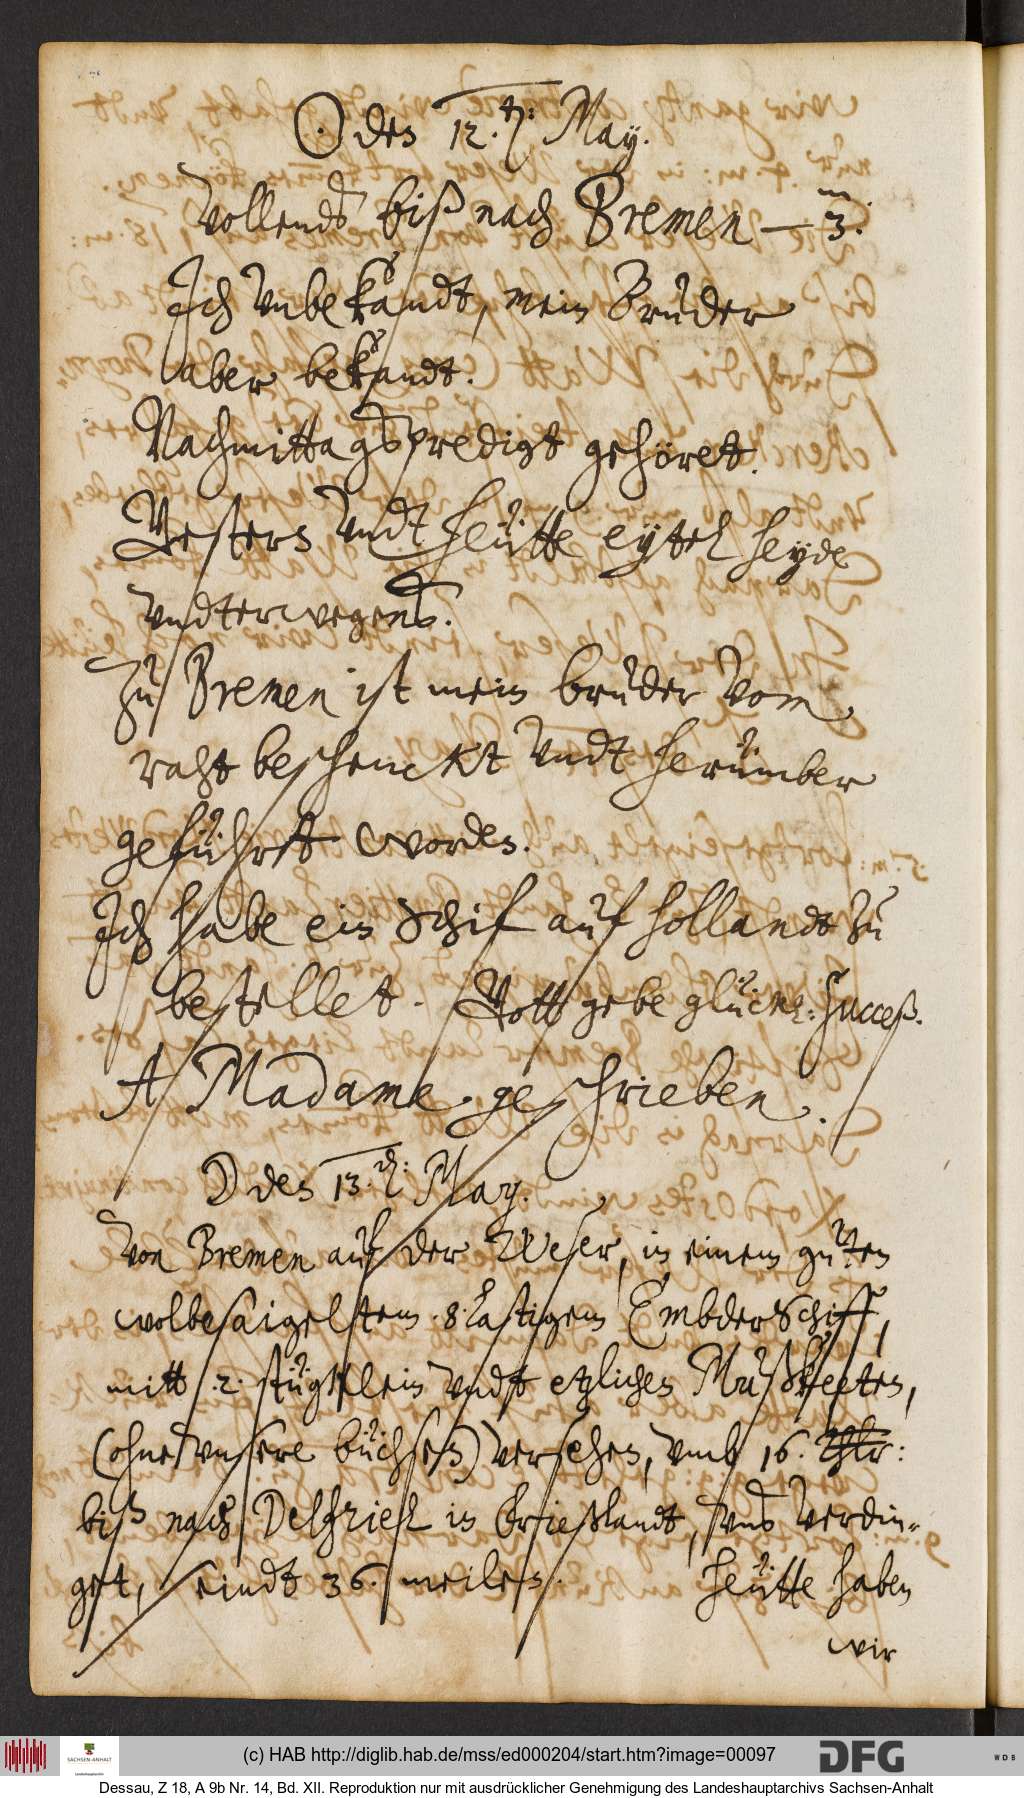 ☉ des 12.ten: May.
Vollends biß nach Bremen — 3. m
Ich vnbekandt, mein Bruder
aber bekandt.
Nachmittagspredigt gehöret.
Gestern vndt heütte eytel heyde
vndterwegens.
Zu Bremen ist mein bruder vom
raht beschenckt vndt herümber
geführtt worden.
Ich habe ein Schif auf hollandt zu
bestellet. Gott gebe glückl: succeß.
A Madame. geschrieben.
☽ den 13.den: May.
Von Bremen auf der Weser, in einem guten
wolbesaigelltem .8. lastigem Embder Schiff,
mitt .2. stügklein vndt etzlichen Mußkeeten,
(ohne vnsere büchsen) versehen, vmb 16. Thlr:
biß nach Delfziehl in Frießlandt, vns verdin-
get, seindt 36. meilen. heütte haben
wir
(c) HAB http://diglib.hab.de/mss/ed000204/start.htm?image=00097
SACHSEN-ANHALT
DFG
WDB
Dessau, Z 18, A 9b Nr. 14, Bd. XII. Reproduktion nur mit ausdrücklicher Genehmigung des Landeshauptarchivs Sachsen-Anhalt